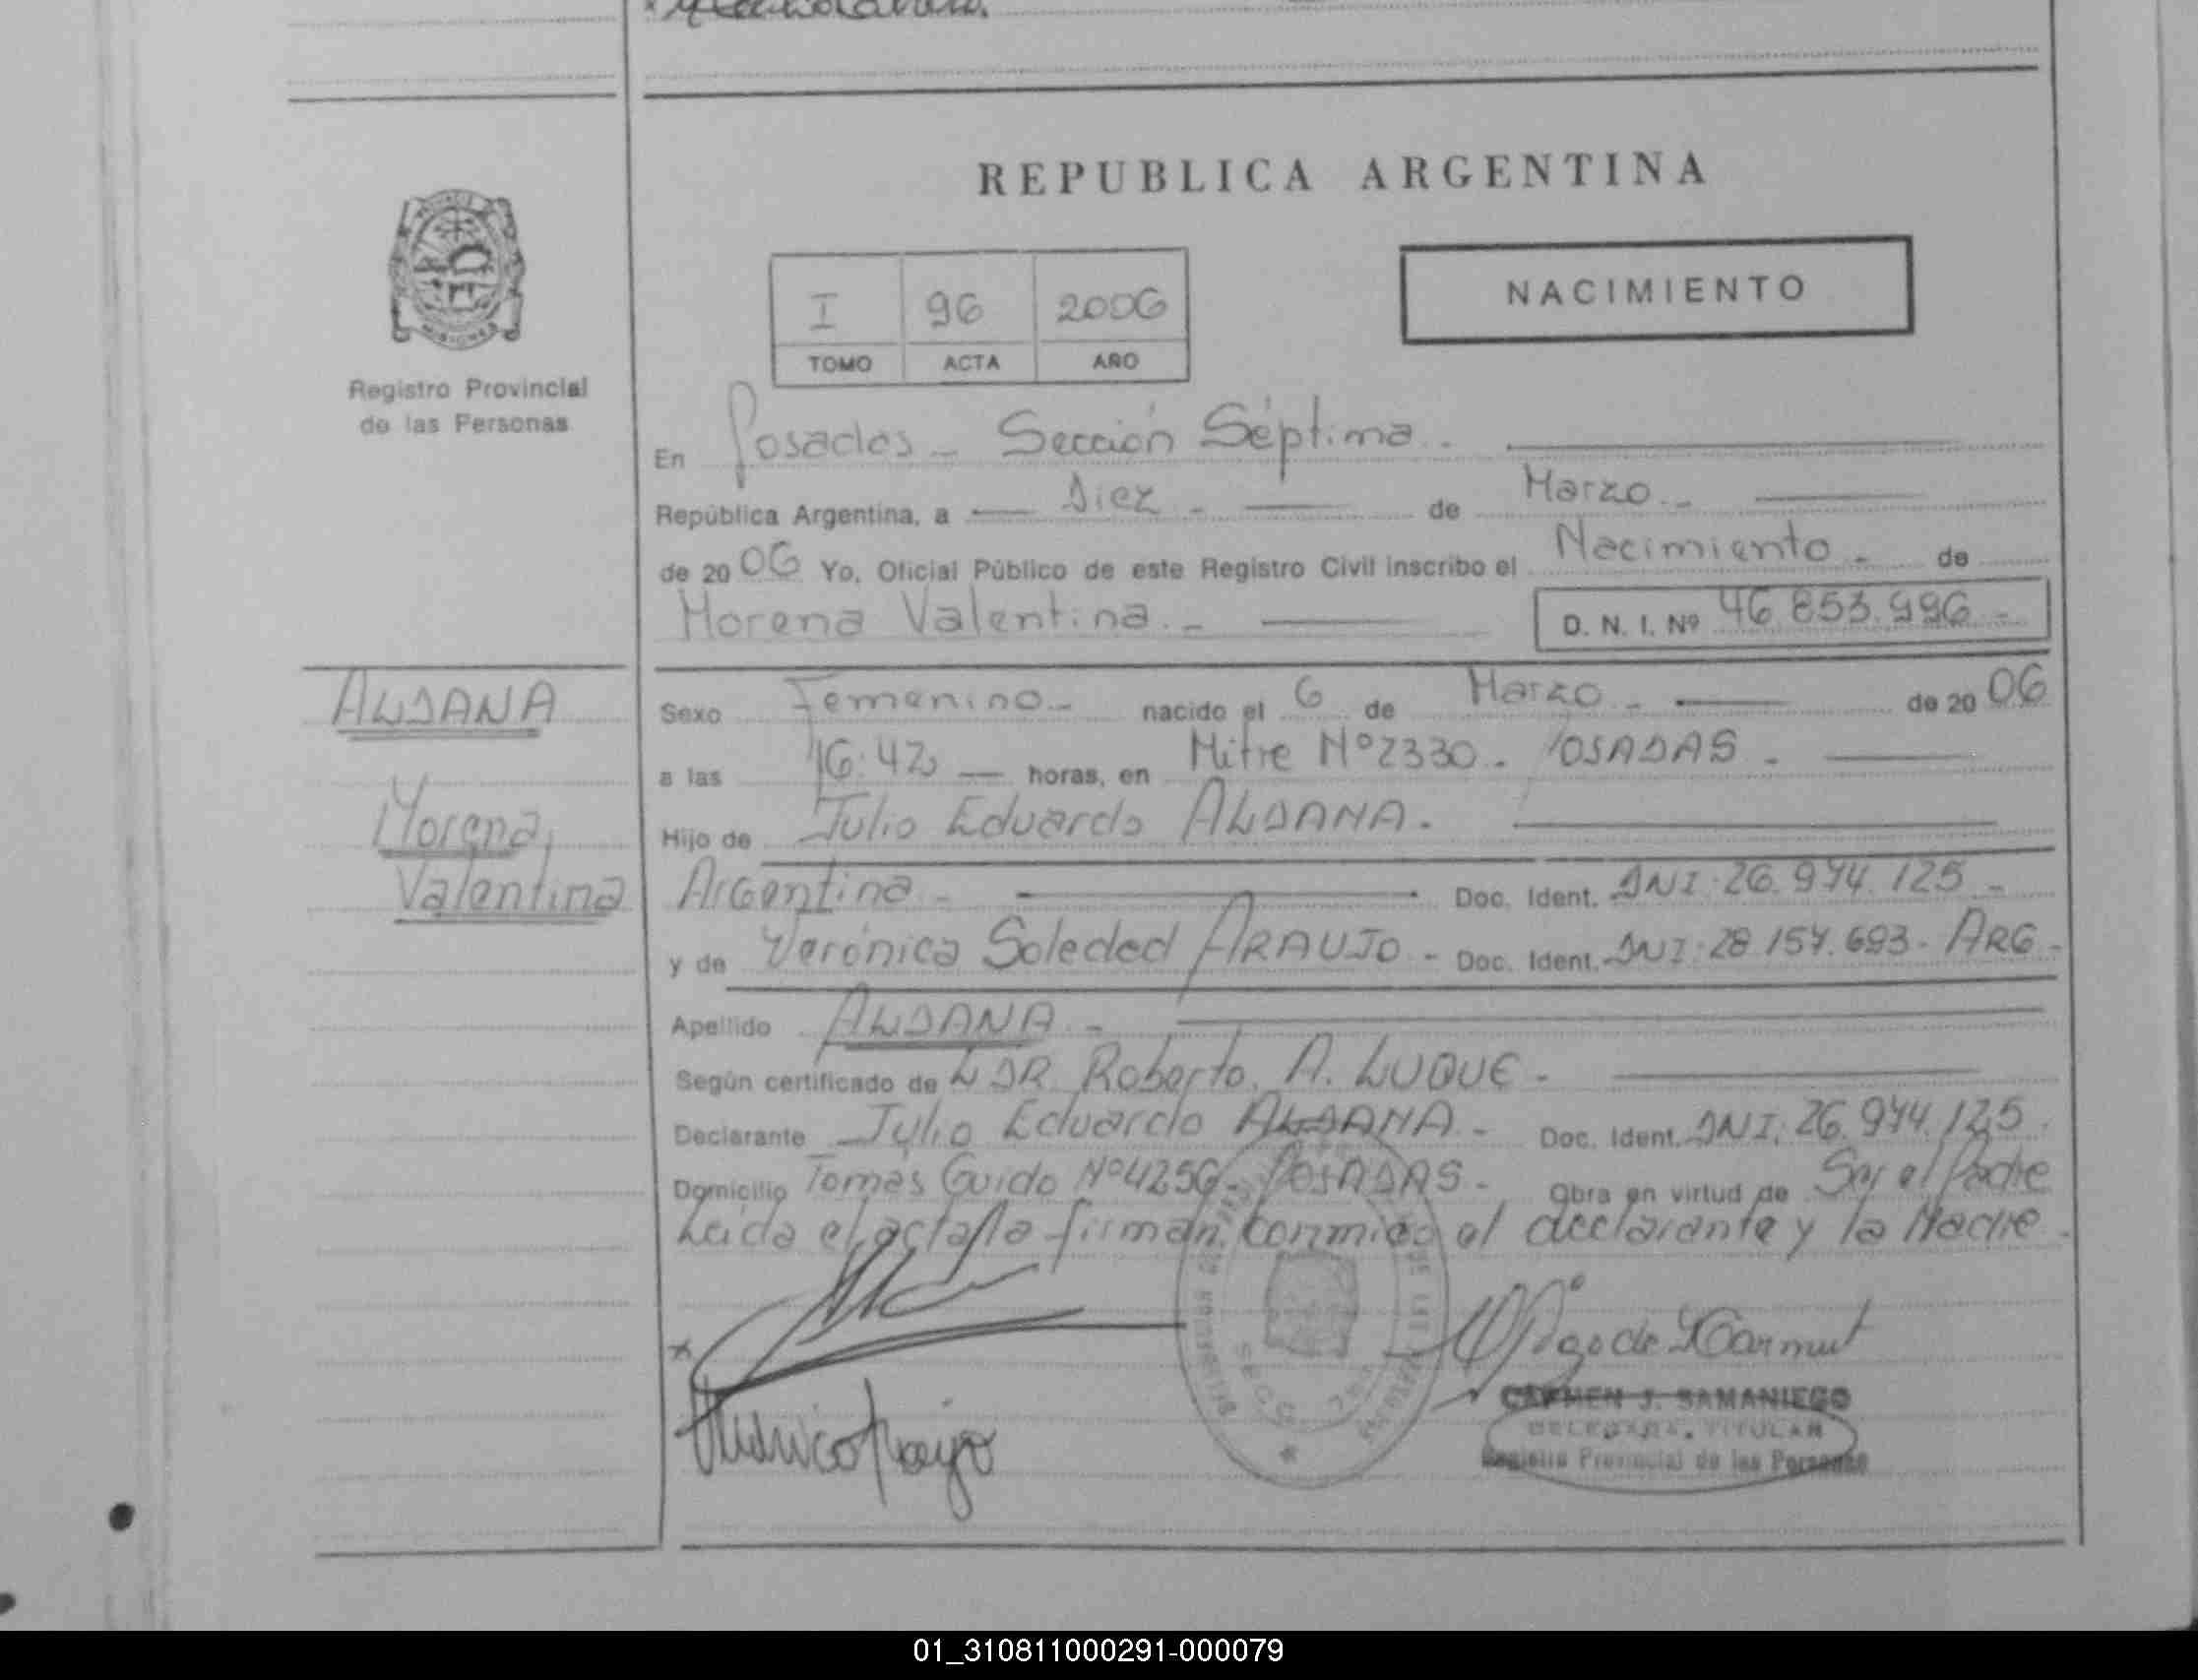 REPUBLICA ARGENTINA
NACIMIENTO
I 96 2006
TOMO ACTA AÑO
Registro Provincial
de las Personas
En Posadas - Sección Séptima -
República Argentina, a Diez - de Marzo -
de 2006 Yo, Oficial Público de este Registro Civil inscribo el Nacimiento - de
Morena Valentina - D. N. I. Nº 46.853.996 -
ALDANA
Morena
Valentina
Sexo Femenino - nacido el 6 de Marzo - de 2006
a las 16:42 horas, en Mitre Nº 2330 - POSADAS -
Hijo de Julio Eduardo ALDANA -
Argentina - Doc. Ident. DNI. 26.974.125 -
y de Verónica Soledad ARAUJO - Doc. Ident. DNI. 28.157.693 - ARG -
Apellido ALDANA -
Según certificado de LDR Roberto A. LUQUE -
Declarante Julio Eduardo ALDANA - Doc. Ident. DNI. 26.974.125 -
Domicilio Tomás Guido Nº 4256 - POSADAS - Obra en virtud de Ser el Padre
Leida el acta la firman conmigo el declarante y la Madre
CARMEN J. SAMANIEGO
DELEGADA TITULAR
Registro Provincial de las Personas
01_310811000291-000079